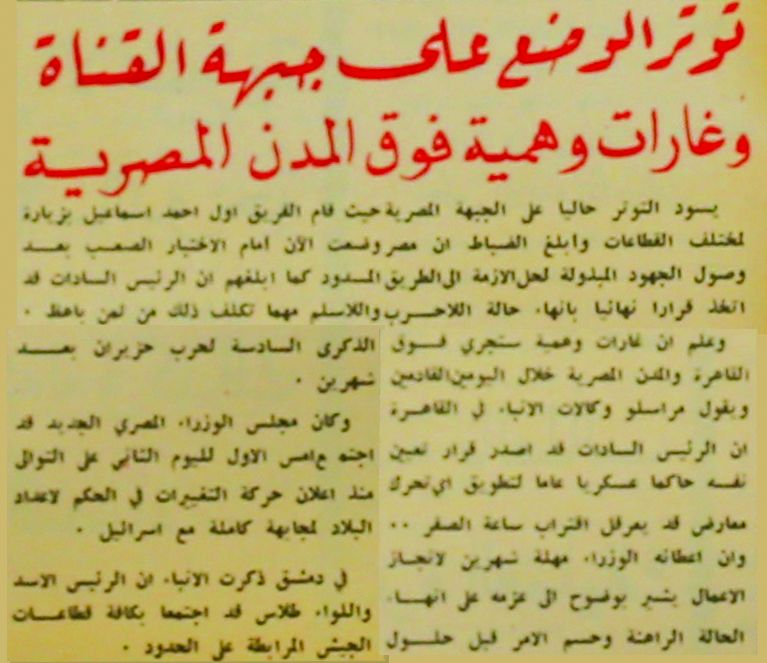 توتر الوضع على جبهة القناة
وغارات وهمية فوق المدن المصرية
يسود التوتر حاليا على الجبهة المصرية حيث قام الفريق اول احمد اسماعيل بزيارة
لمختلف القطاعات وأبلغ الضباط ان مصر وضعت الآن أمام الاختيار الصعب بعد
وصول الجهود المبذولة لحل الازمة الى الطريق المسدود كما ابلغهم ان الرئيس السادات قد
اتخذ قرارا نهائيا بانهاء حالة اللاحرب واللاسلم مهما تكلف ذلك من ثمن باهظ .
وعلم ان غارات وهمية ستجري فوق
القاهرة والمدن المصرية خلال اليومين القادمين
ويقول مراسلو وكالات الانباء في القاهرة
ان الرئيس السادات قد اصدر قرار تعيين
نفسه حاكما عسكريا عاما لتطويق اي تحرك
معارض قد يعرقل اقتراب ساعة الصفر ..
وان اعطائه الوزراء مهلة شهرين لانجاز
الاعمال يشير بوضوح الى عزمه على انهاء
الحالة الراهنة وحسم الامر قبل حلول
الذكرى السادسة لحرب حزيران بعد
شهرين .
وكان مجلس الوزراء المصري الجديد قد
اجتمع امس الاول لليوم الثاني على التوالي
منذ اعلان حركة التغييرات في الحكم لاعداد
البلاد لمجابهة كاملة مع اسرائيل .
في دمشق ذكرت الانباء ان الرئيس الاسد
واللواء طلاس قد اجتمعا بكافة قطاعات
الجيش المرابطة على الحدود .